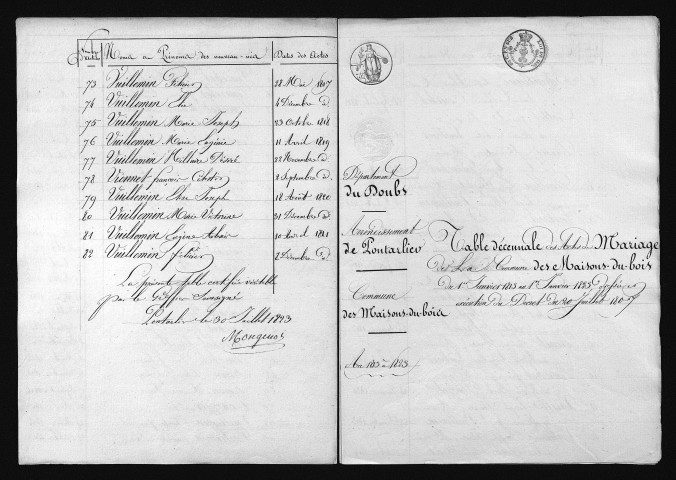 Noms et Prénoms des nouveau-nés Dates des Actes
73 Vuillemin 28 Mai 1817
74 Vuillemin 4 Décembre d.
75 Vuillemin Marie Joseph 23 Octobre 1818
76 Vuillemin Marie 11 Avril 1819
77 Vuillemin Désiré 22 Novembre d.
78 Vionnet françois 2 Septembre d.
79 Vuillemin Joseph 18 Août 1820
80 Vuillemin Marie Victorine 31 Décembre d.
81 Vuillemin 10 Avril 1821
82 Vuillemin 2 Décembre d.
La présente table certifiée véritable
par le Greffier Soussigné
Pontarlier le 30 Juillet 1823
Mougenot
Département
du Doubs
Arrondissement
de Pontarlier
Commune
des Maisons-du-bois
An 1813 à 1823
Table décennale des Actes de Mariage
de la Commune des Maisons-du-bois
Du 1er Janvier 1813 au 1er Janvier 1823
exécution du Décret du 20 Juillet 1807